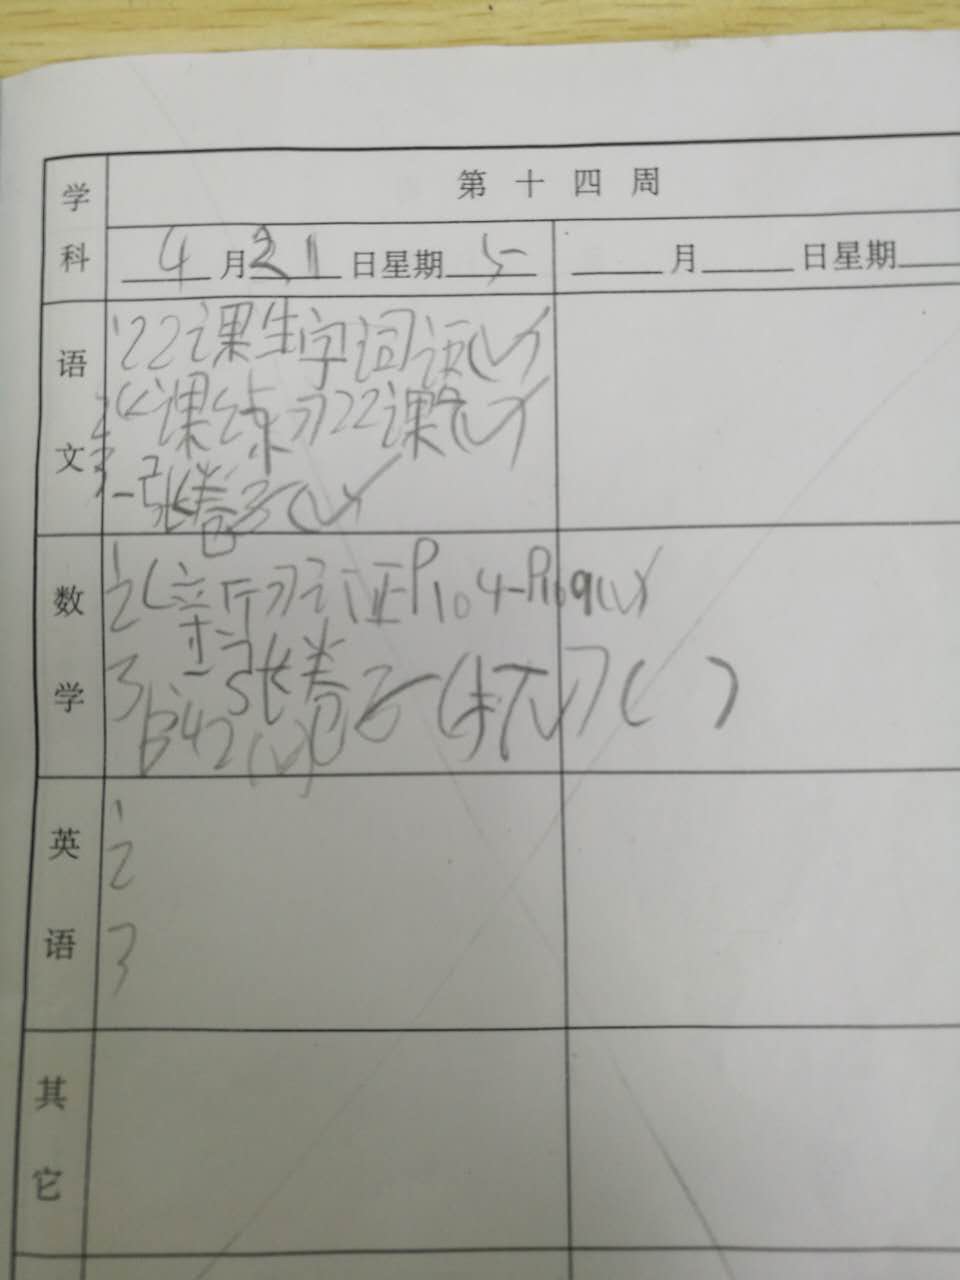 学科
第十四周
4月21日星期5
月 日星期
语文
1 22课生字词语(√)
2 《课练习》22课(√)
3 一张卷子(√)
数学
1
2 P104-P109(√)
3 一张卷子 ( )
B42(√)
英语
1
2
3
其它